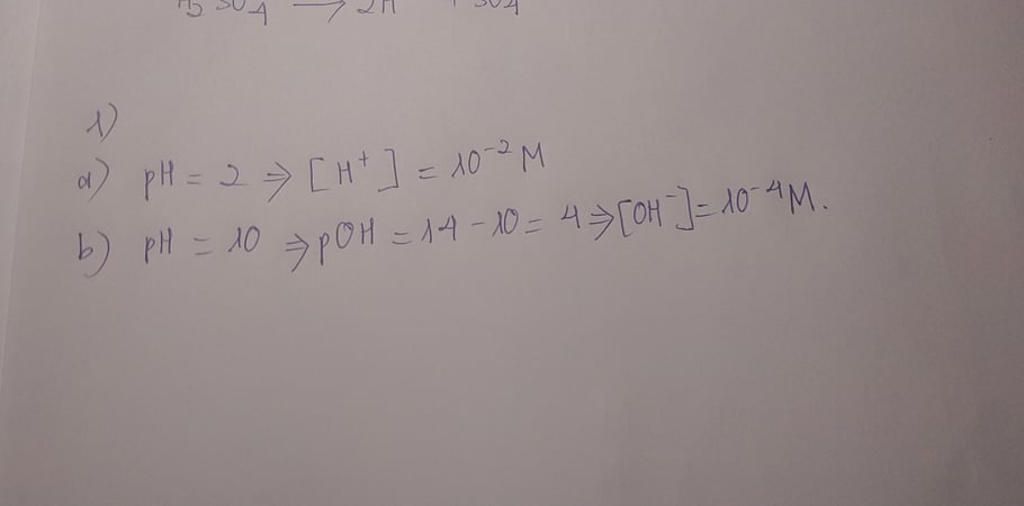 H₂SO₄ → 2H
1)
a) pH = 2 ⇒ [H⁺] = 10⁻² M
b) pH = 10 ⇒ pOH = 14 - 10 = 4 ⇒ [OH⁻] = 10⁻⁴ M.